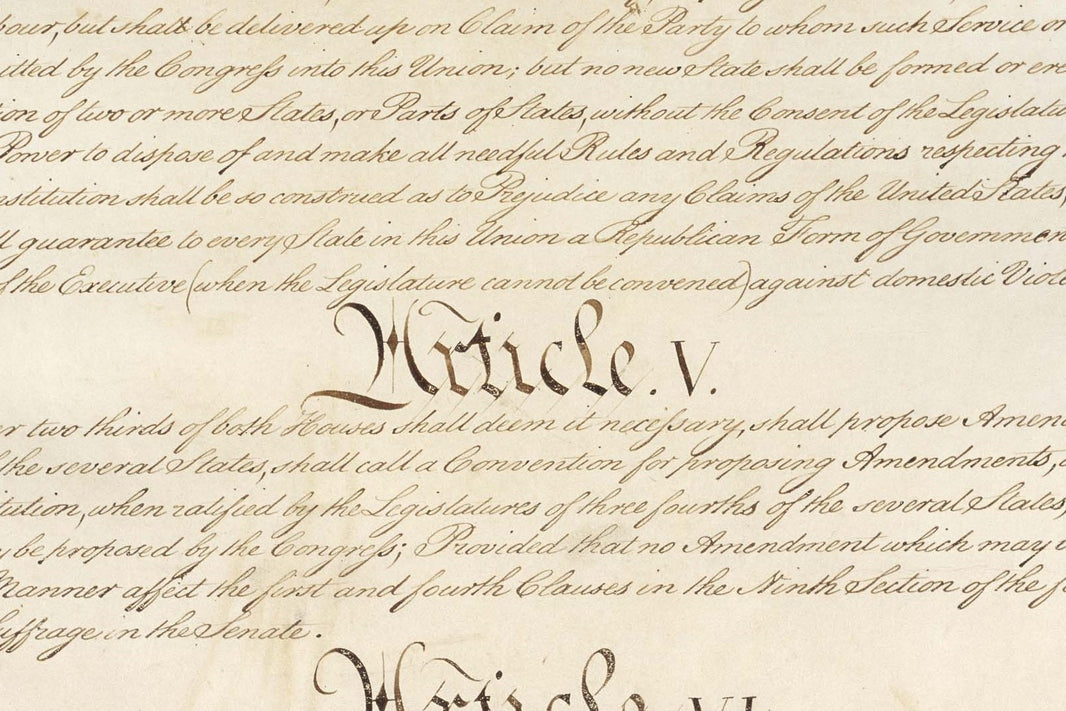 bour, but shall be delivered up on Claim of the Party to whom such Service or
itted by the Congress into this Union; but no new State shall be formed or ere
ion of two or more States, or Parts of States, without the Consent of the Legislatu
Power to dispose of and make all needful Rules and Regulations respecting
nstitution shall be so construed as to Prejudice any Claims of the United States,
ll guarantee to every State in this Union a Republican Form of Governmen
of the Executive (when the Legislature cannot be convened) against domestic Viole
Article. V.
er two thirds of both Houses shall deem it necessary, shall propose Amend
f the several States, shall call a Convention for proposing Amendments,
itution, when ratified by the Legislatures of three fourths of the several States,
y be proposed by the Congress; Provided that no Amendment which may
Manner affect the first and fourth Clauses in the Ninth Section of the f
uffrage in the Senate.
Article. VI.